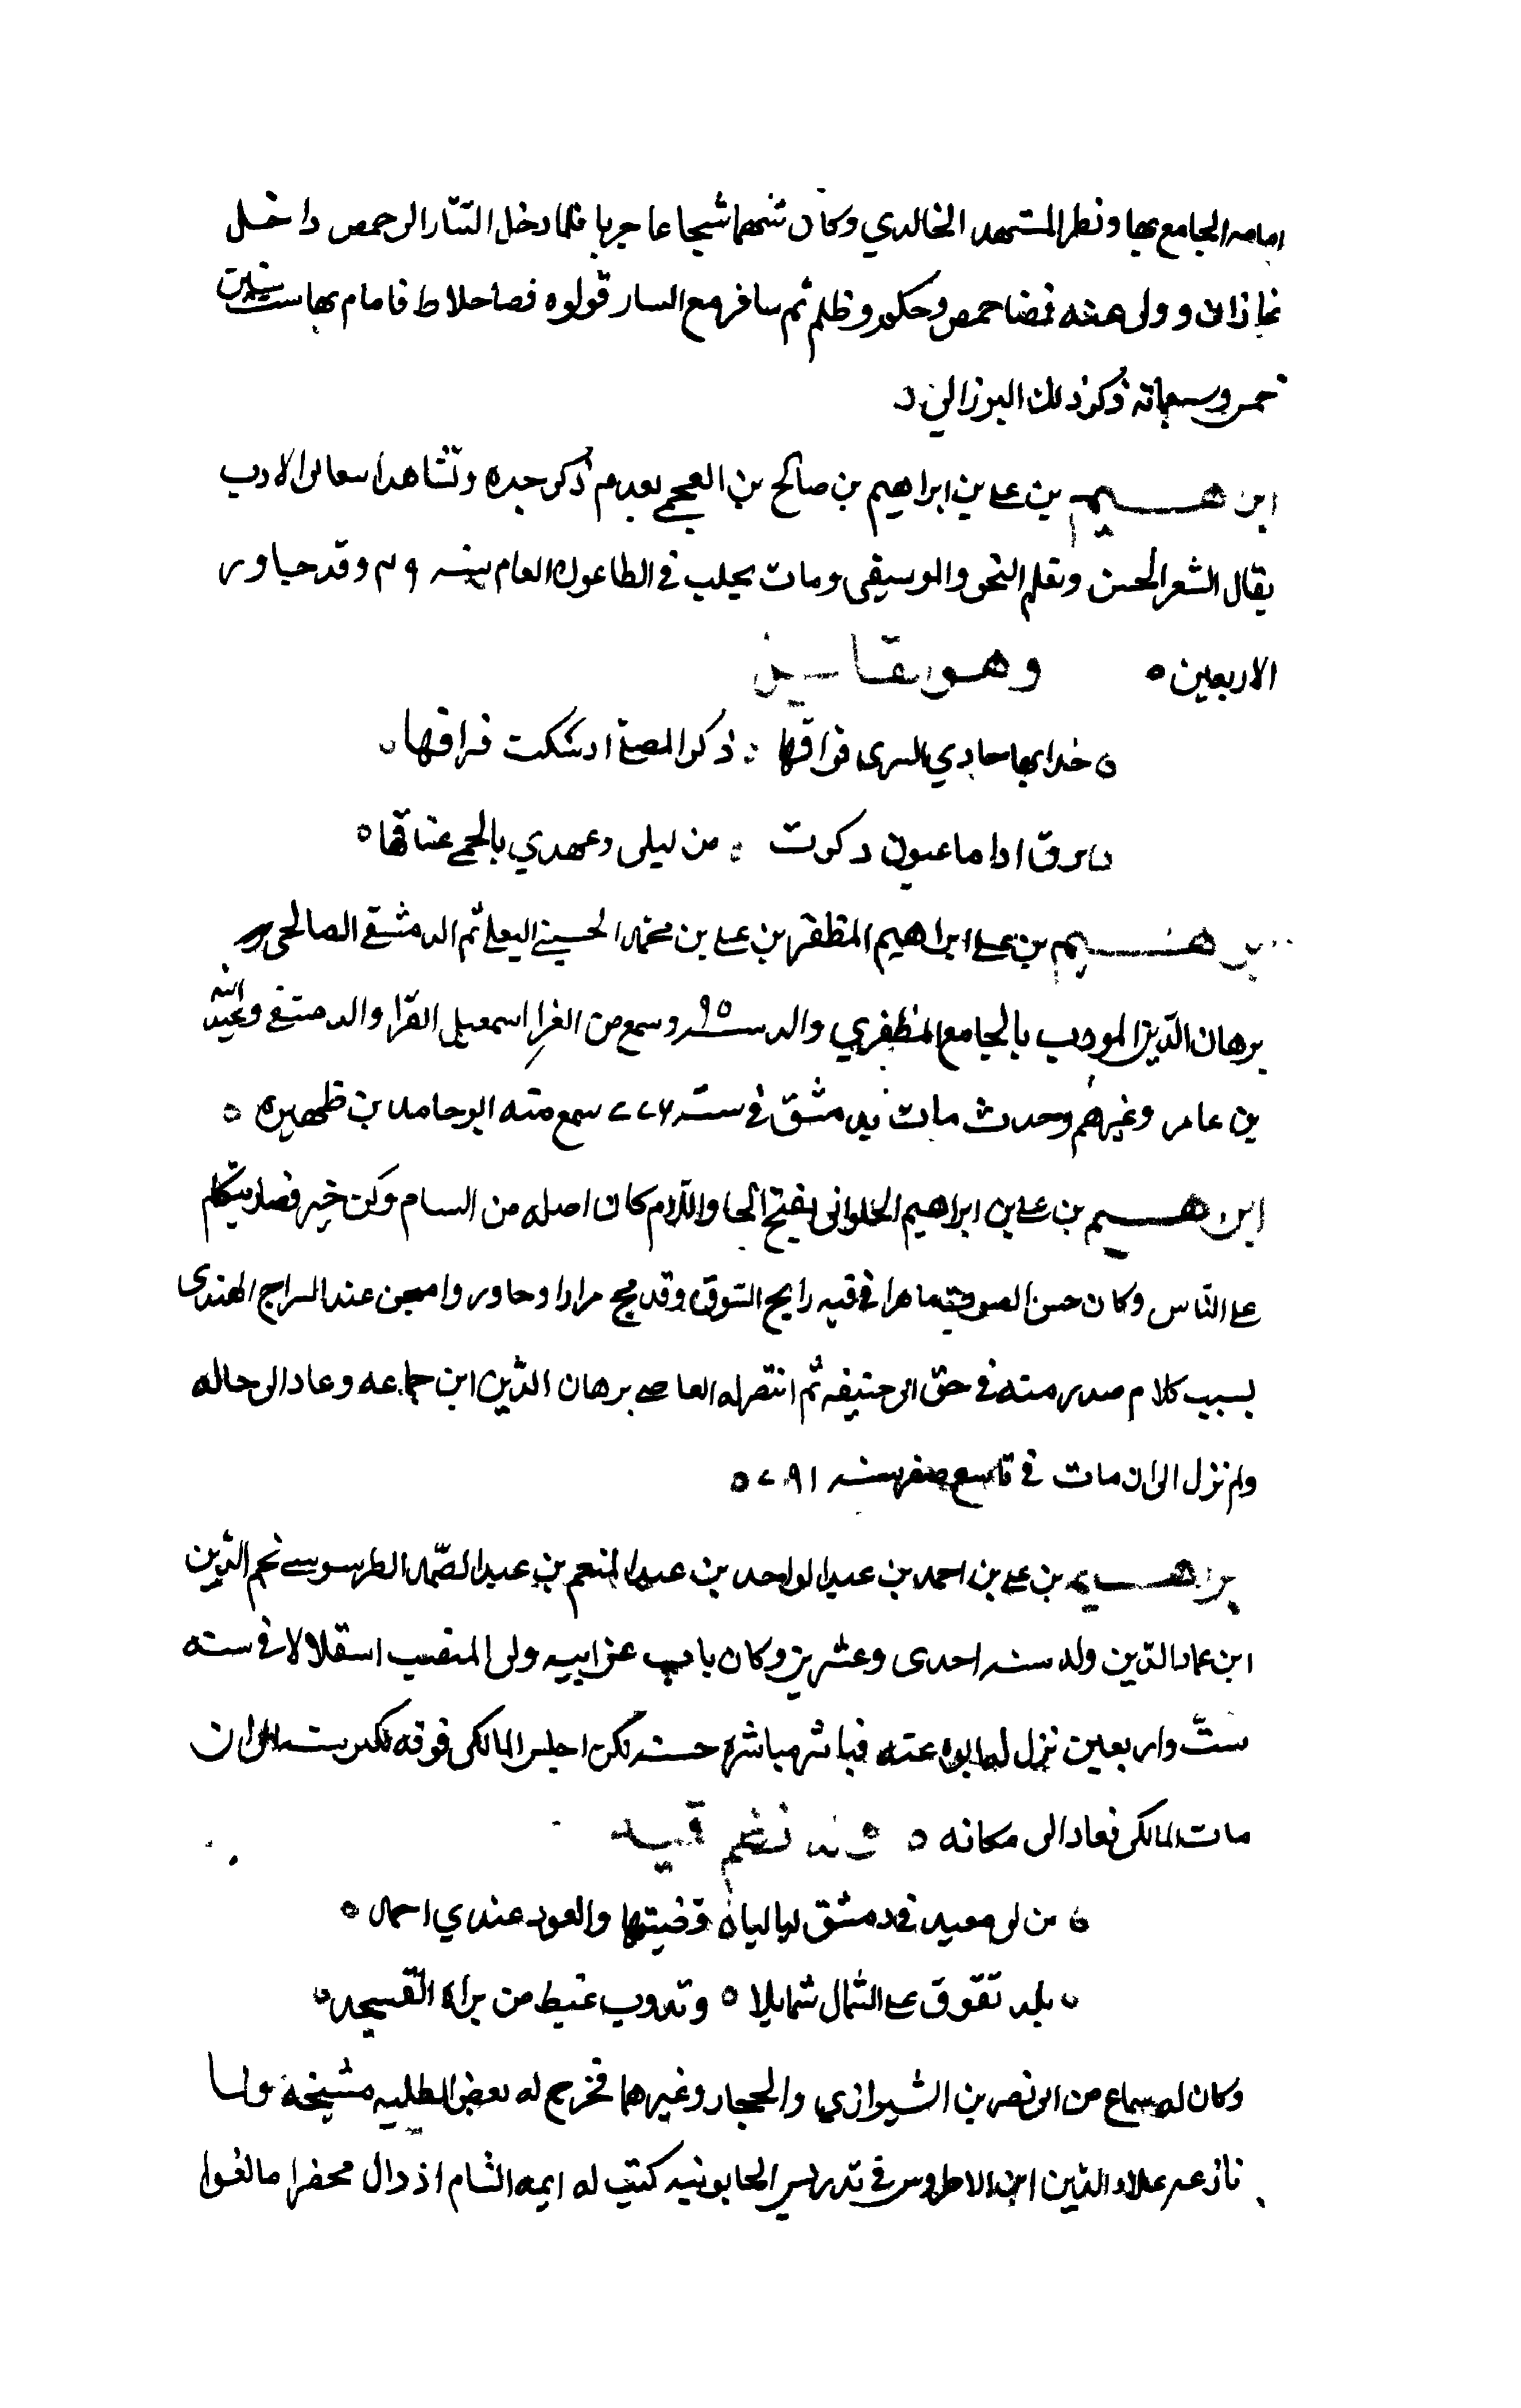 امامه الجامع بها ونظر المشهد الخالدي وكان شهما شجاعا جريا فلما دخل التتار الى حمص داخل
غازان وولى عنه قضا حمص وحكم وظلم ثم سافر مع التتار فولوه قضا خلاط فاقام بها سنتين
خمس وسبعمائة ذكر ذلك البرزالي
ابرهيم بن علي بن ابراهيم بن صالح بن العجمي تقدم ذكر جده ونشا هذا معاني الادب
يقال الشعر الحسن وتعلم النحو والموسيقى ومات بحلب في الطاعون العام سنه ٤٩ وقد جاوز
الاربعين ٥ وهو القايل
٥ حدا بها حادي السرى فراقها ذكر المصلى اذ شكت فراقها
٥ برق اذا ما ذكرت من ليلى وعهدي بالحمى عناقها ٥
ابرهيم بن علي ابراهيم المظفر بن علي بن محمد الحسيني البعلي ثم الدمشقي الصالحي
برهان الدين المودب بالجامع المظفري ولد سنه ٩٥ وسمع من الغرا اسمعيل الفرا والدمشقي وعبد الله
بن عامر وغيرهم وحدث مات بدمشق في سنه ٧٧٦ سمع منه ابو حامد بن ظهيره ٥
ابرهيم بن علي بن ابراهيم الحلواني بفتح الحا واللام كان اصله من الشام ولكن خير فصار يتكلم
على الناس وكان حسن الصوت ماهرا في فنه رايج السوق وقد حج مرارا وجاور وامتحن عند السراج الهندي
بسبب كلام صدر منه في حق ابي حنيفه ثم انتصر له القاضي برهان الدين ابن جماعه وعاد الى حاله
ولم نزل الى ان مات في تاسع صفر سنه ٧٩١ ٥
ابرهيم بن علي بن احمد بن عبد الواحد بن عبد المنعم بن عبد الصمد الطرسوسي نجم الدين
ابن عماد الدين ولد سنه احدى وعشرين وكان ناب عن ابيه ولى المنصب استقلالا في سنه
ست واربعين نزل له ابوه عنه فباشر مباشرة حسنه لكن اجلس المالكي فوقه لكبر سنه الى ان
مات المالكي فعاد الى مكانه ٥ ومن نظم فيه
٥ من لي معيد في دمشق لياليا ٥ قضيتها والعود عندي احمد ٥
٥ بلد تفوق على الشمال شمايلا ٥ وتدوب غيظ من براه العسجد ٥
وكان له سماع من ابي نصر بن الشيرازي والحجار وغيرهما فخرج له بعض الطلبه مشيخة ولما
نازعه علاء الدين ابن الاطروس في تدريس الخاتونيه كتب له ايمه الشام اذ ذاك محضرا بالغوا